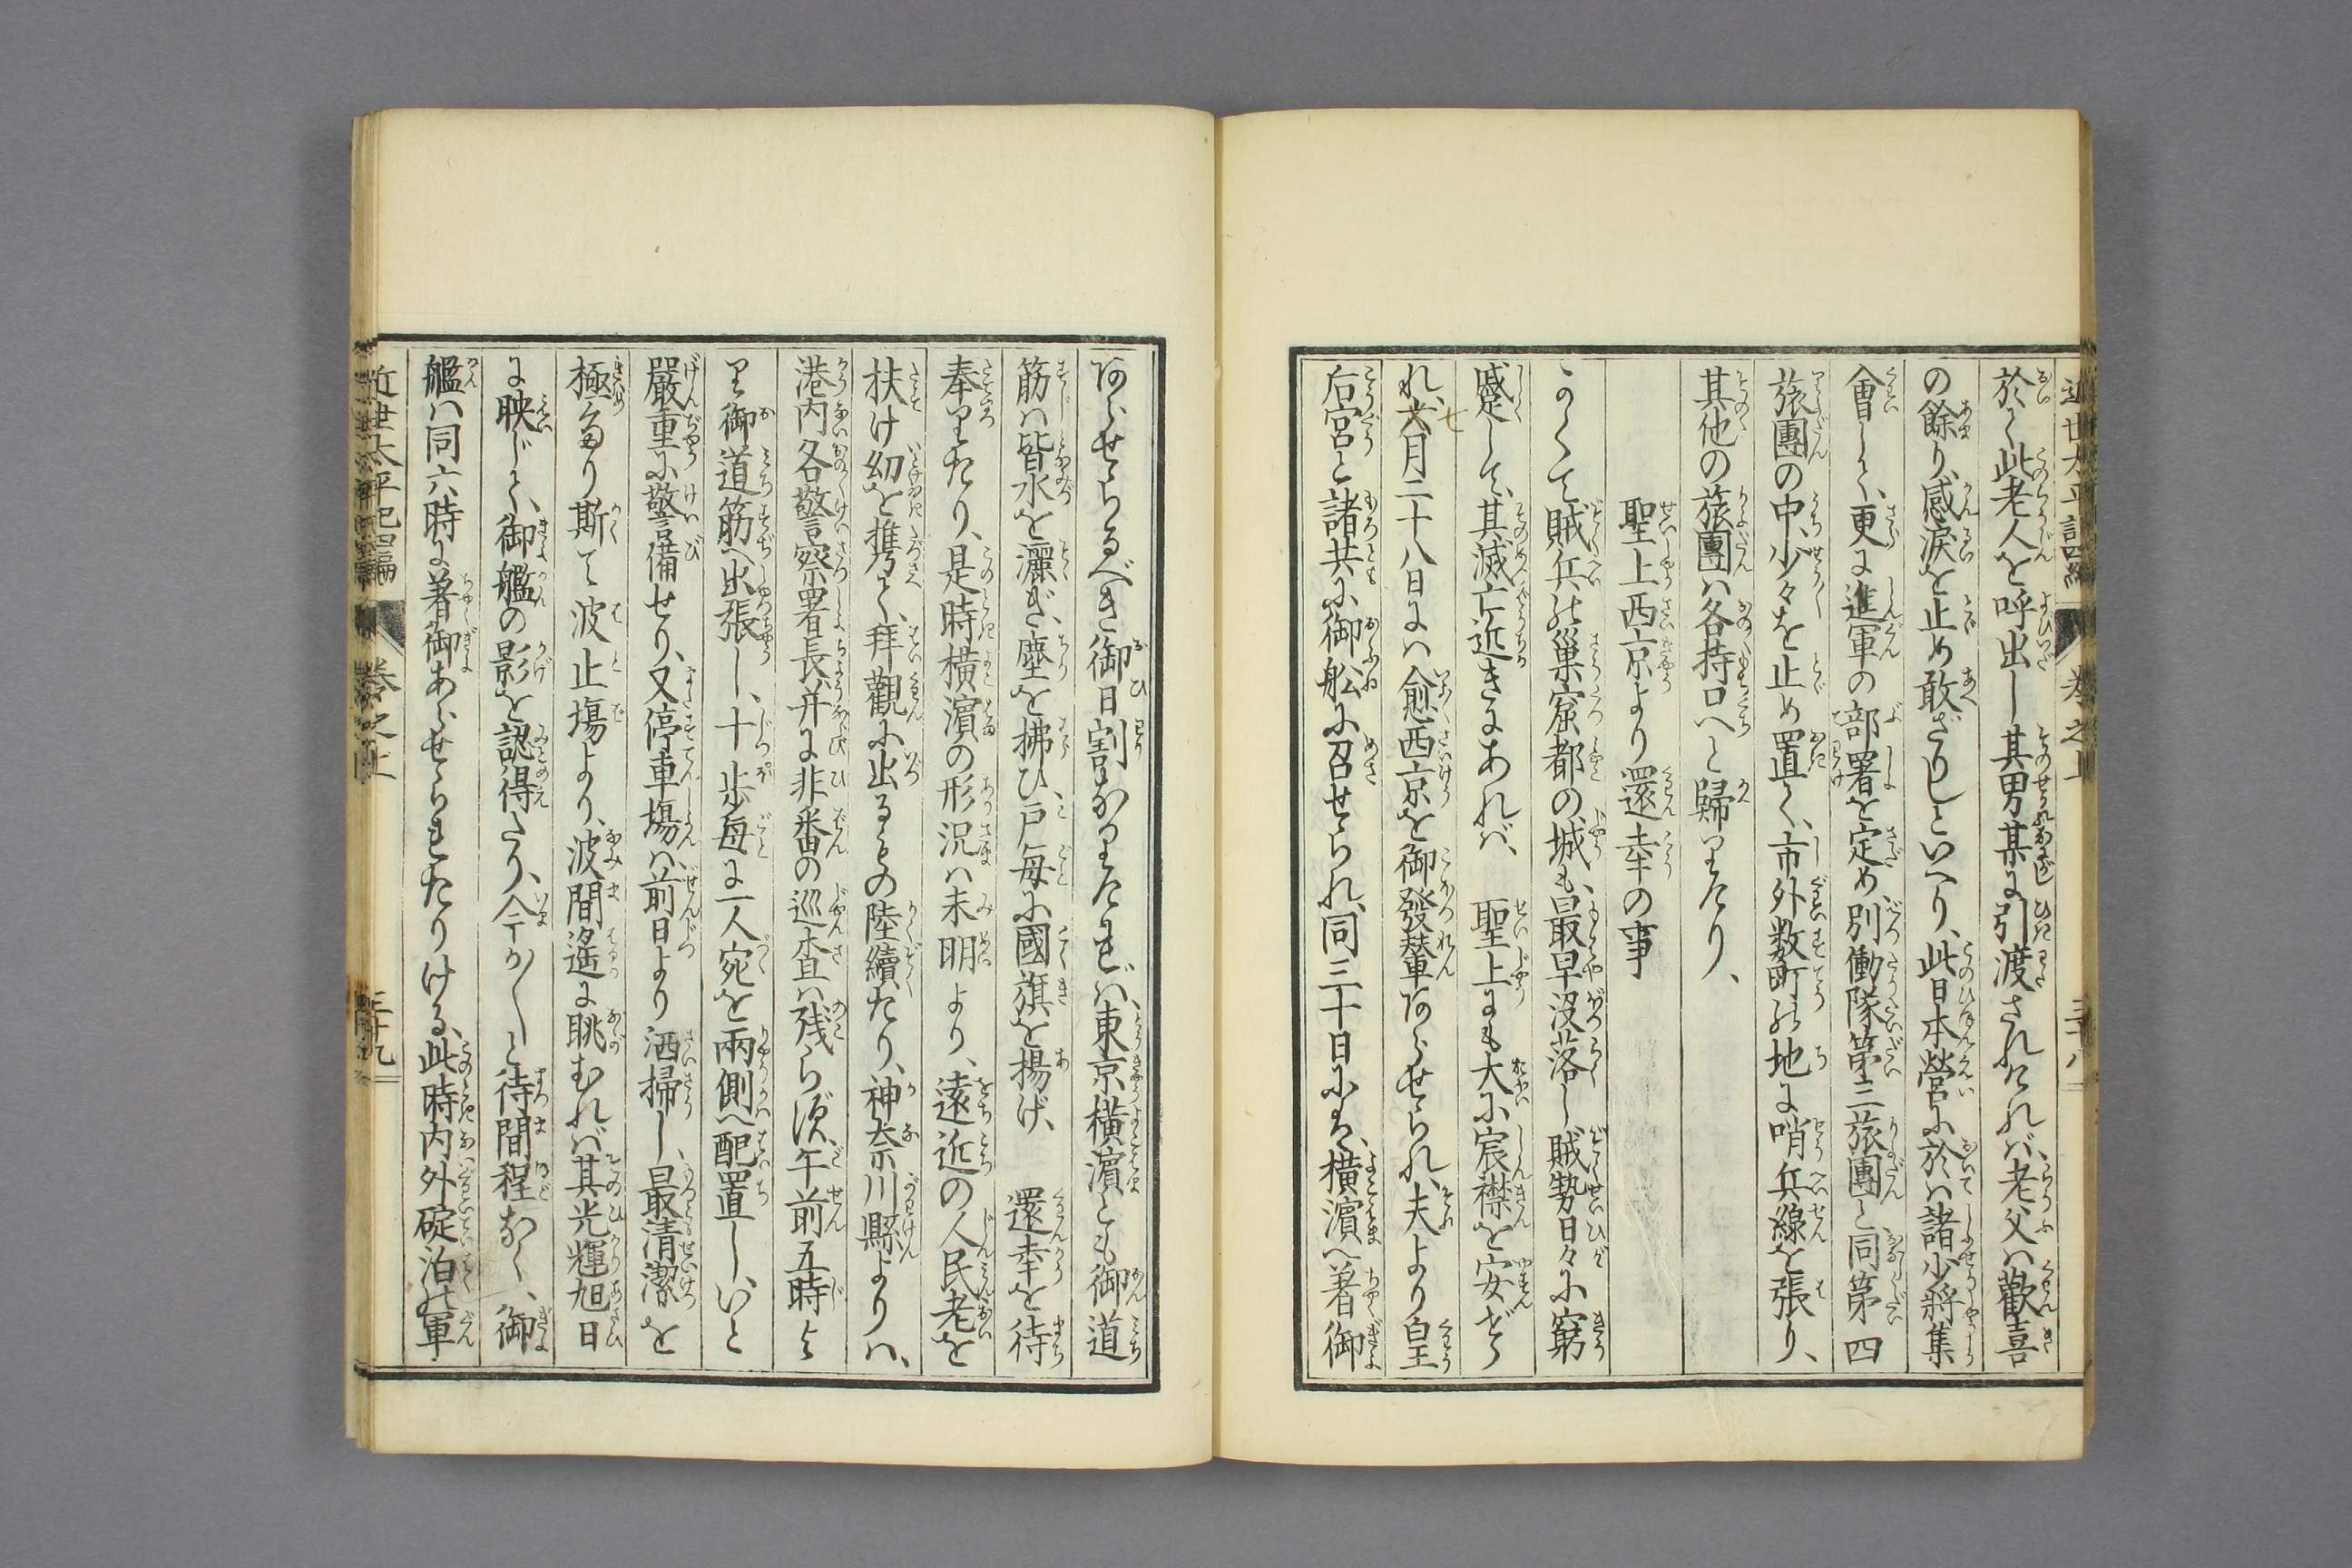 近世太平記四編 卷之上 三十八
於て此老人を呼出し其男某に引渡されけれバ、老父ハ歡喜
の餘り、感涙を止め敢ざりしといへり、此日本營に於ハ諸少將集
會して、更に進軍の部署を定め、別働隊第三旅團と同第四
旅團の中、少々を止め置て、市外数町の地に哨兵線を張り、
其他の旅團ハ各持口へと歸りたり、
聖上西京より還幸の事
かくて賊兵の巢窟都の城も、最早沒落し賊勢日々に窮
蹙して、其滅亡近きにあれバ、　聖上にも大に宸襟を安ぜら
れ、六七月二十八日にハ愈西京を御發輦あらせられ、夫より皇
后宮と諸共に御舩に召せられ、同三十日にハ、横濵へ着御
あらせらるべき御日割なりたれバ、東京横濵とも御道
筋ハ皆水を灑ぎ、塵を拂ひ、戸毎に國旗を揚げ、　還幸を待
奉りたり、是時横濵の形況ハ未明より、遠近の人民老を
扶け幼を携て、拜觀に出るもの陸續たり、神奈川縣よりハ、
港内各警察署長并に非番の巡査ハ残らず、午前五時よ
り御道筋へ出張し、十歩毎に一人宛を兩側へ配置し、いと
嚴重に警備せり、又停車塲ハ、前日より洒掃し、最清潔を
極めたり斯て波止塲より、波間遙に眺むれバ其光輝旭日
に映じて、御艦の影を認得たり、今か〱と待間程なく、御
艦ハ同六時に着御あらせられたりける、此時内外碇泊の軍
近世太平記四編 卷之上 三十九